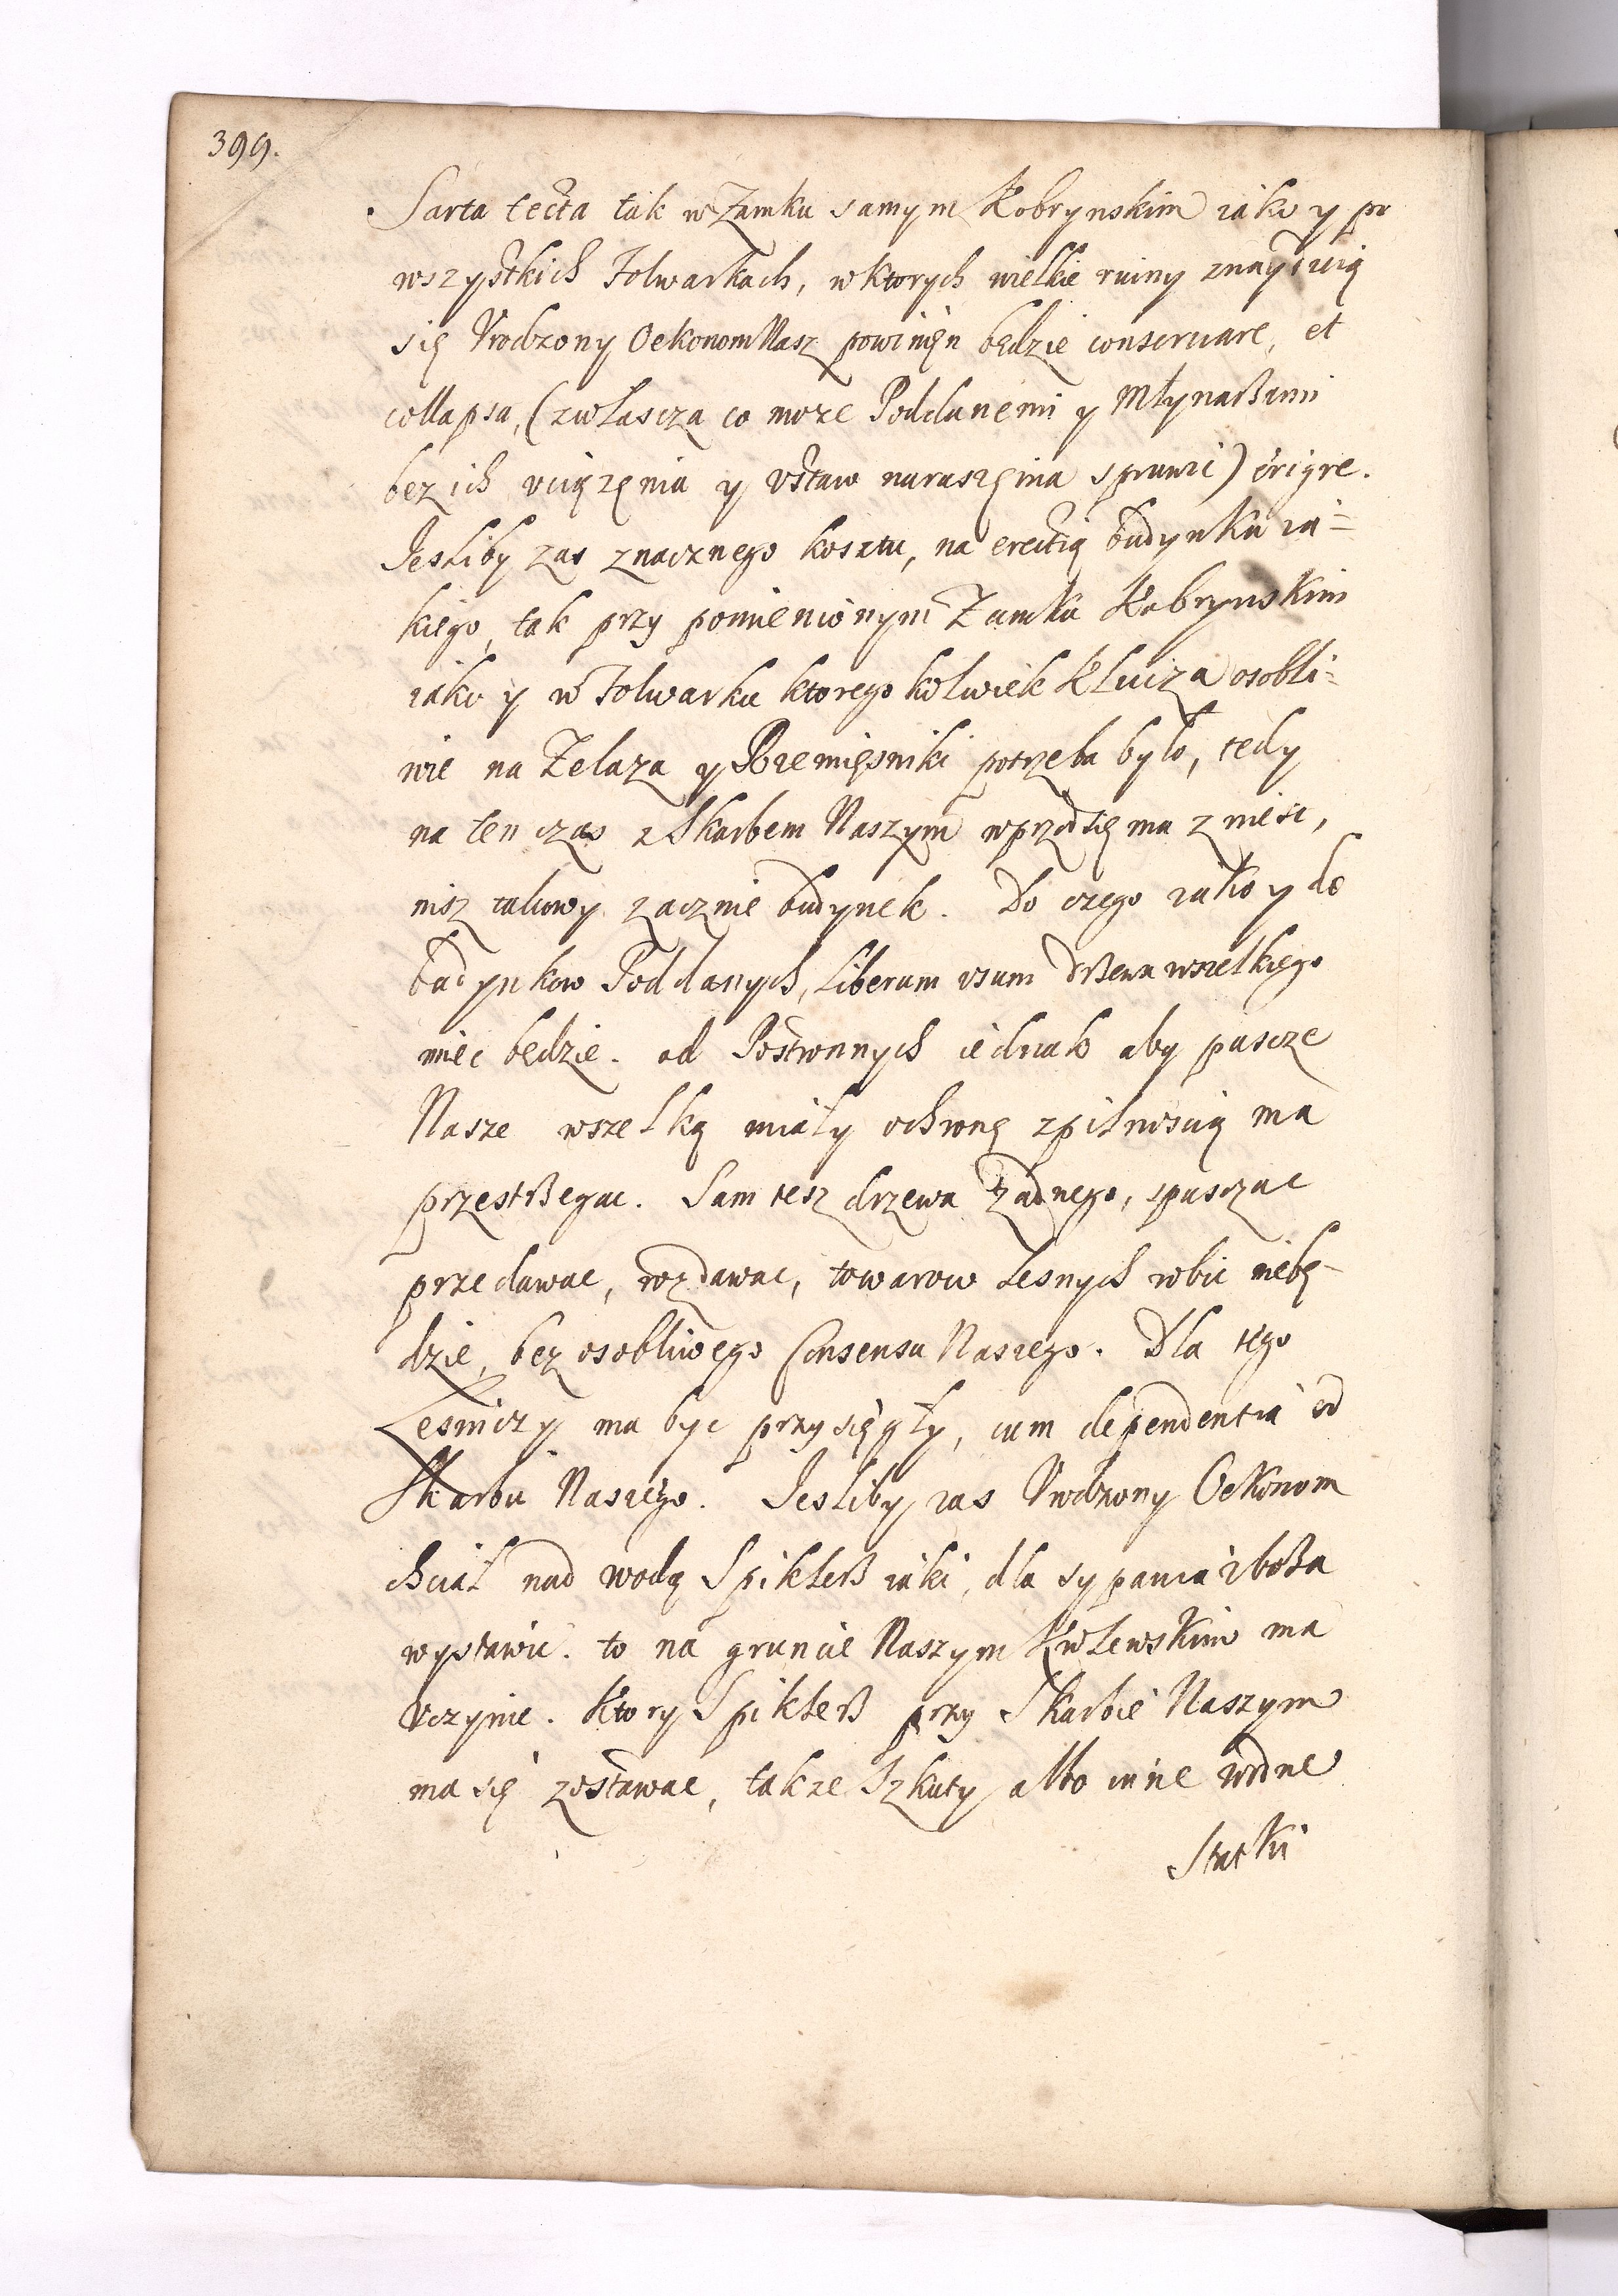 399.
Sarta tecta tak w Zamku samym Kobrynskim iako y po
wszystkich Folwarkach, w ktorych wielkie ruiny znayduią
się Vrodzony Oekonom Nasz powinięn będzie conseruare, et
collapsa, (zwłascza co może Poddanemi y Młynarzami
bez ich vciązęnia y vstaw naruszęnia sprawić) erigre.
Jesliby zas znacznego kosztu, na erectią budynku ia=
kięgo, tak przy pomienionym Zamku Kobrynskim
iako y w Folwarku ktorego kolwiek Klucza osobli=
wie na Zelaza y Rzemięsniki potrzeba było, tedy
na ten czas z Skarbem Naszym wprzod się ma zniesc,
nisz takowy zacznie budynek. Do czego iako y do
budynkow Poddanych, Liberum vsum drzewa wszelkięgo
miec będzie. od Postronnych iednak aby puscze
Nasze wszelką miały ochronę z pilnoscią ma
przestrzegac. Sam tesz drzewa zadnego, spusczac
przedawac, rozdawac, towarow Lesnych robic niebę-
dzie, bez osobliwego Consensu Naszego. Dla tego
Lesniczy ma byc przysięgły, cum dependentia od
Skarbu Naszego. Jesliby zas Vrodzony Oekonom
chciał nad wodą Spiklerz iaki, dla sypania zboża
wystawic. to na gruncie Naszym Krolewskim ma
vczynic. Ktory Spiklerz przy Skarbie Naszym
ma się zostawac, takze Szkuty albo inne wodne
Statki